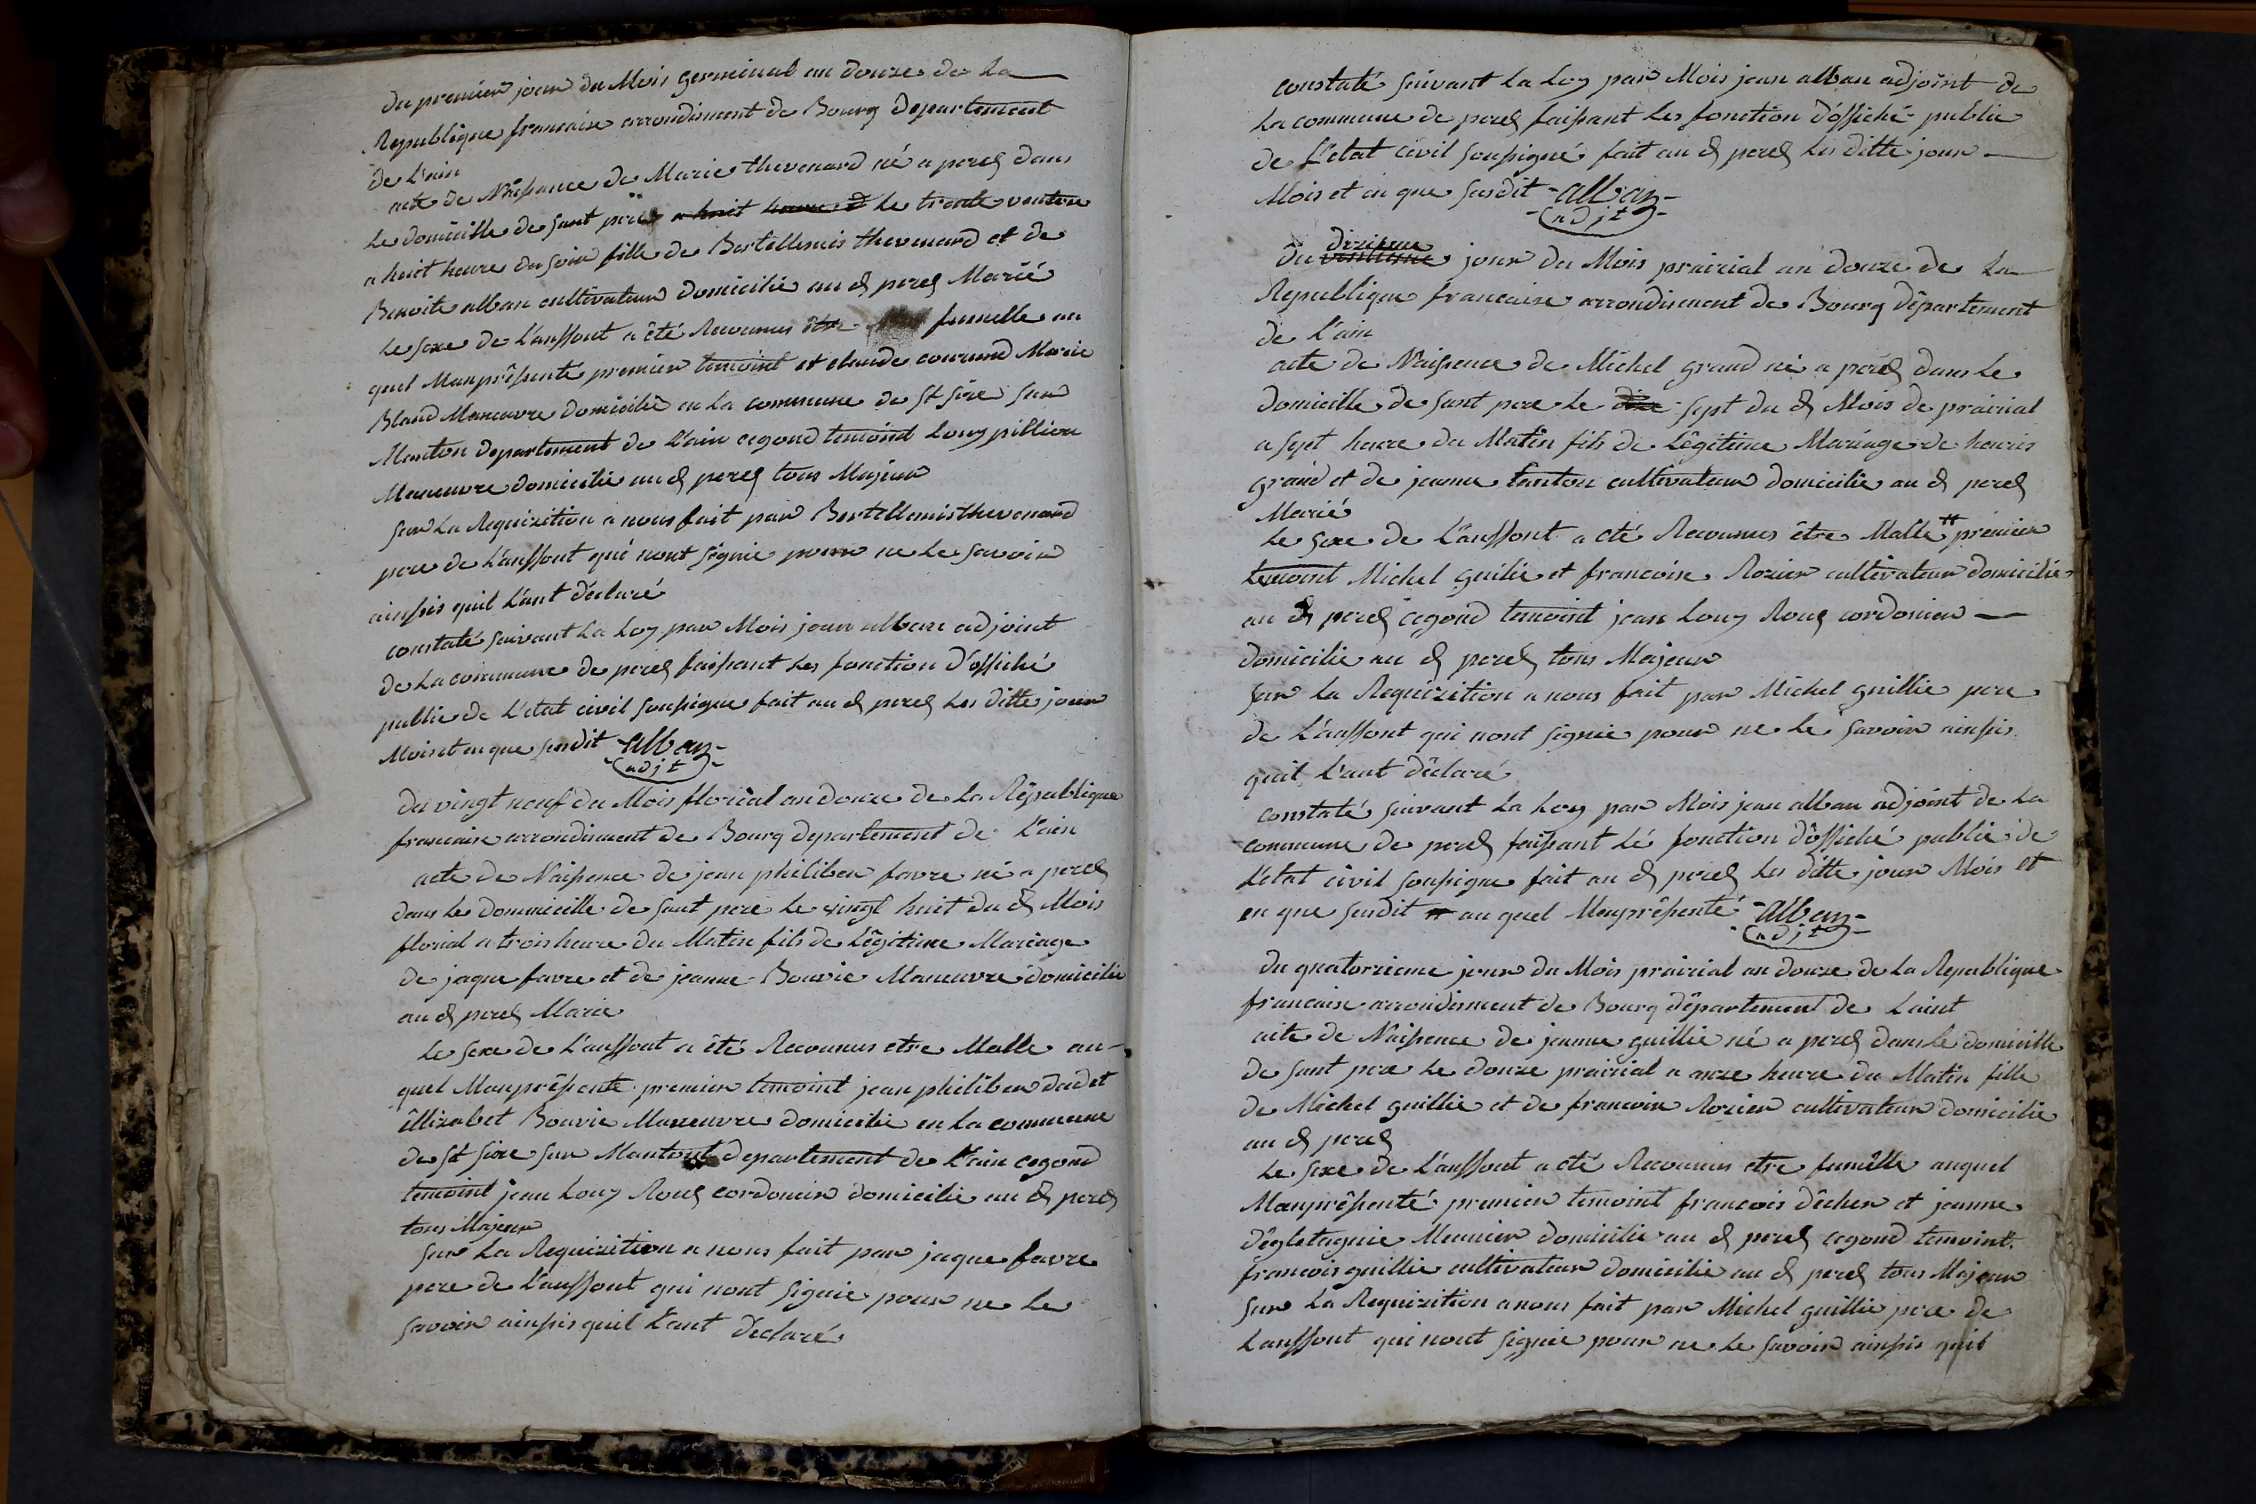 du premier jour du Mois germinal an douze de la
Republique francaise arrondisment de Bourg departement
de L'ain
acte de Naissance de Marie thevenard né a perex dans
le domicille de sant pere a huit heure d le trente ventose
a huit heure du soir fille de Bertellemis thevenard et de
Benoite alban cultivateur domicilié au d perex Marié
le sexe de L'anffont a été Reconnus être fumelle au
quel Manprêsente premier temoint et claude courand Marie
Bland Maneuvre domicilié en la commune de St sire sur
Menton departement de L'ain cegond temoint Louy pillion
Maneuvre domicilié au d perex tous Majeur
sur La Requizition a nous fait par Bertellemis thevenard
pere de L'anffont qui nont signie pour ne le savoir
ainsis quil L'ant déclaré
constaté suivant La Loy par Mois jean alban adjoint
de La commune de perex faissant les fonction d'offiché
public de L'etat civil soussigne fait au d perex les ditte jour
Mois et en que susdit alban
adjt
du vingt neuf du Mois florial an douze de La République
francaise arrondisment de Bourg departement de L'ain
acte de Naissence de jean philiber favre né a perex
dans le dommicille de sant pere le vingt huit du d Mois
florial a trois heure du Matin fils de Lêgitime Mariage
de jaque favre et de jeanne Bouvie Maneuvre domicilié
au d perex Marie
Le sexe de L'anffont a été Reconnus etre Malle au
quel Manprêsente premier temoint jean philiber dudet
êllizabet Bouvie Maneuvre domicilie en La commune
de St sire sur Mantont departement de L'ain cegond
temoint jean Louy Roux cordonier domicilié au d perex
tous Majeur
sur La Requizition a nous fait par jaque favre
pere de L'anffont qui nont signie pour ne le
savoir ainsis quil L'ant déclaré
constaté suivant La Loy par Mois jean alban adjoint de
La commune de perex faissant les fonction d'offiché public
de L'etat civil soussigné fait au d perex les ditte jour
Mois et en que susdit alban
adjt
dizieme
du ventieme jour du Mois prairial an douze de La
Republique francaise arrondisment de Bourg dêpartement
de L'ain
acte de Naissence de Michel grand né a perex dans le
domicille de sant pere le dixe sept du d Mois de prairial
a sept heure du Matin fils de Lêgitime Mariage de henris
grand et de jeanne tanton cultivateur domicilié au d perex
Marié
Le sexe de L'anffont a eté Reconnus être Malle # prémier
temoint Michel guilié et francoise Rozier cultivateur domicilié
au d perex cegond temoint jean Louy Roux cordonier
domicilié au d perex tous Majeur
sur La Requizition a nous fait par Michel guillie pere
de L'anffont qui nont signie pour ne le savoir ainsis
quil L'ant dêclaré
constaté suivant La Loy par Mois jean alban adjoint de La
commune de perex faissant lé fonction d'offiché public de
L'etat civil soussigne fait au d perex les ditte jour Mois et
en que susdit # au quel Manprêsenté alban
adjt
du quatorzieme jour du Mois prairial an douze de La Republique
francaise arrondisment de Bourg dêpartement de L'aint
acte de Naissence de jeanne guillié né a perex dans le domicille
de sant pere le douze prairial a onze heure du Matin fille
de Michel guillié et de francoise Rozier cultivateur domicilié
au d perex
Le sexe de L'anffont a eté Reconnus etre fumêlle auquel
Manprêsenté premier temoint francois dêcher et jeanne
dégletagnie Meunier domicilié au d perex cegond temoint
francois guillie cultivateur domicilié au d perex tous Majeur
sur La Requizition a nous fait par Michel guillie pere de
L'anffont qui nont signie pour ne le savoir ainsis quil